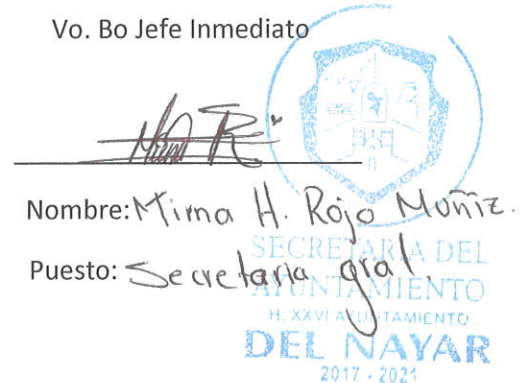 Vo. Bo Jefe Inmediato
Nombre: Mirna H. Rojo Muñiz.
Puesto: Secretaria gral.
SECRETARÍA DEL
AYUNTAMIENTO
H. XXVI AYUNTAMIENTO
DEL NAYAR
2017 - 2021